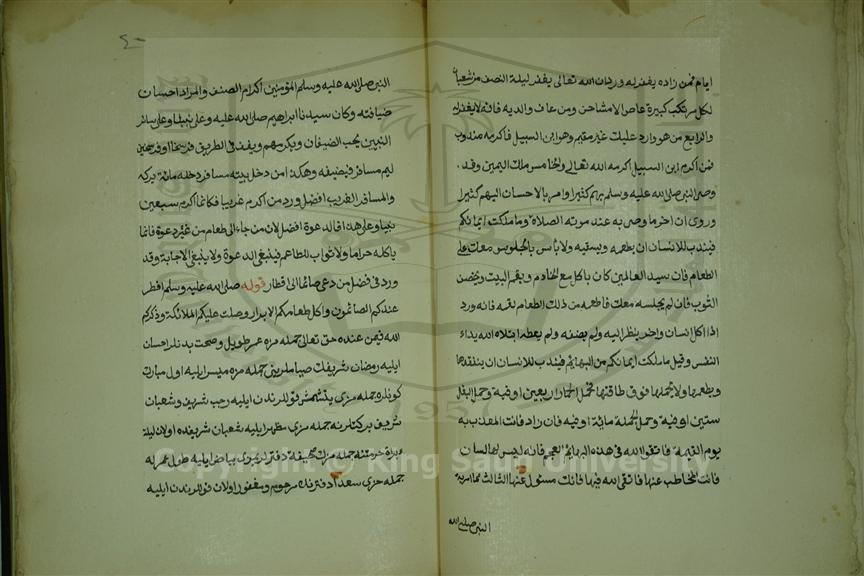 ايام فمن زاده يغفر له وردان الله تعالى يغفر ليلة النصف من شعبان
لكل مرتكب كبيرة عاص الا مشاحن ومن عاف والديه فانه لا يغفر له
والرابع من هو وارد عليك غير مقيم وهو ابن السبيل فاكرمه مندوب
فمن اكرم ابن السبيل اكرمه الله تعالى والخامس ملك اليمين وقد
وصى النبي صلى الله عليه وسلم برهم كثيرا وامر بالاحسان اليهم كثيرا
وروى ان اخر ما وصى به عند موته الصلاة وما ملكت ايمانكم
فيندب للانسان ان يطعمه ويسقيه ولا بأس بالجلوس معك على
الطعام فان سيد العالمين كان ياكل مع الخادم ويقم البيت ويخصف
الثوب فان لم يجلسه معك فاطعمه من ذلك الطعام لقمه فانه ورد
اذا اكل انسان واخر ينظر اليه ولم يضفه ولم يعطه ابتلاه الله بداء
النفس وقيل ما ملكت ايمانكم من البهائم فيندب للانسان ان يتفقدها
ويطعمها ولا يحملها فوق طاقتها فحمل الحمار اربعين اوقية وحمل البغل
ستين اوقية وحمل الجملة مائية اوقيه فان زاد فانت المعذب به
يوم القيمة فاتقوا الله في هذه البهائم العجم فانه ليس لها لسان
فانت المخاطب عنها فاتقى الله فيها فانك مسئول عنها الثالث مما امر به
النبي صلى الله
٤٠
النبي صلى الله عليه وسلم المؤمنين اكرام الضيف والمراد احسان
ضيافته وكان سيدنا ابراهيم صلى الله عليه وعلى نبينا وعلى سائر
النبيين يحب الضيفان ويكرمهم ويقف في الطريق فرسخا او فرسخين
ليم مسافر فيضيفه وهكذا من دخل بيته مسافر دخله مائة بركه
والمسافر الغريب افضل ورد من اكرم غريبا فكانما اكرم سبعين
نبيا وعلى هذا قالدعوة افضل لان من جاء الى طعام من غير دعوة فانما
ياكله حراما ولا ثواب للطاعم فينبغى الدعوة ولا ينبغى الاجابة وقد
ورد في فضل من دعى صائما الى فطار قوله صلى الله عليه وسلم افطر
عندكم الصائمون واكل طعامكم الابرار وصلت عليكم الملائكة وذكركم
الله فيمن عنده حق تعالى جمله مزه عمر طويل وصحت بدنلر احسان
ايليه رمضان شريفك صيامليرين جمله مزه ميسر ايليه اول مبارك
كونلره جمله مزى يتشمش قوللرندن ايليه رجب شهرين وشعبان
شريف بركتلرنه جمله مزى مظهر ايليه شعبان شريفده اولان ليلة
براة حرمتنه جمله مزك صحيفه دفترلريزى بياض ايليه طول عمر له
جمله مزى سعدا دفترنك مرحوم ومغفور اولان قوللرندن ايليه
Copyright © King Saud University
1957